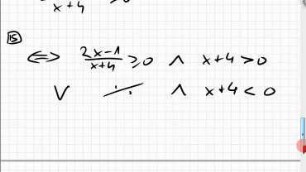 x+4
15
⇔ (2x-1)/(x+4) ≥ 0 ∧ x+4 > 0
∨ -//- ∧ x+4 < 0